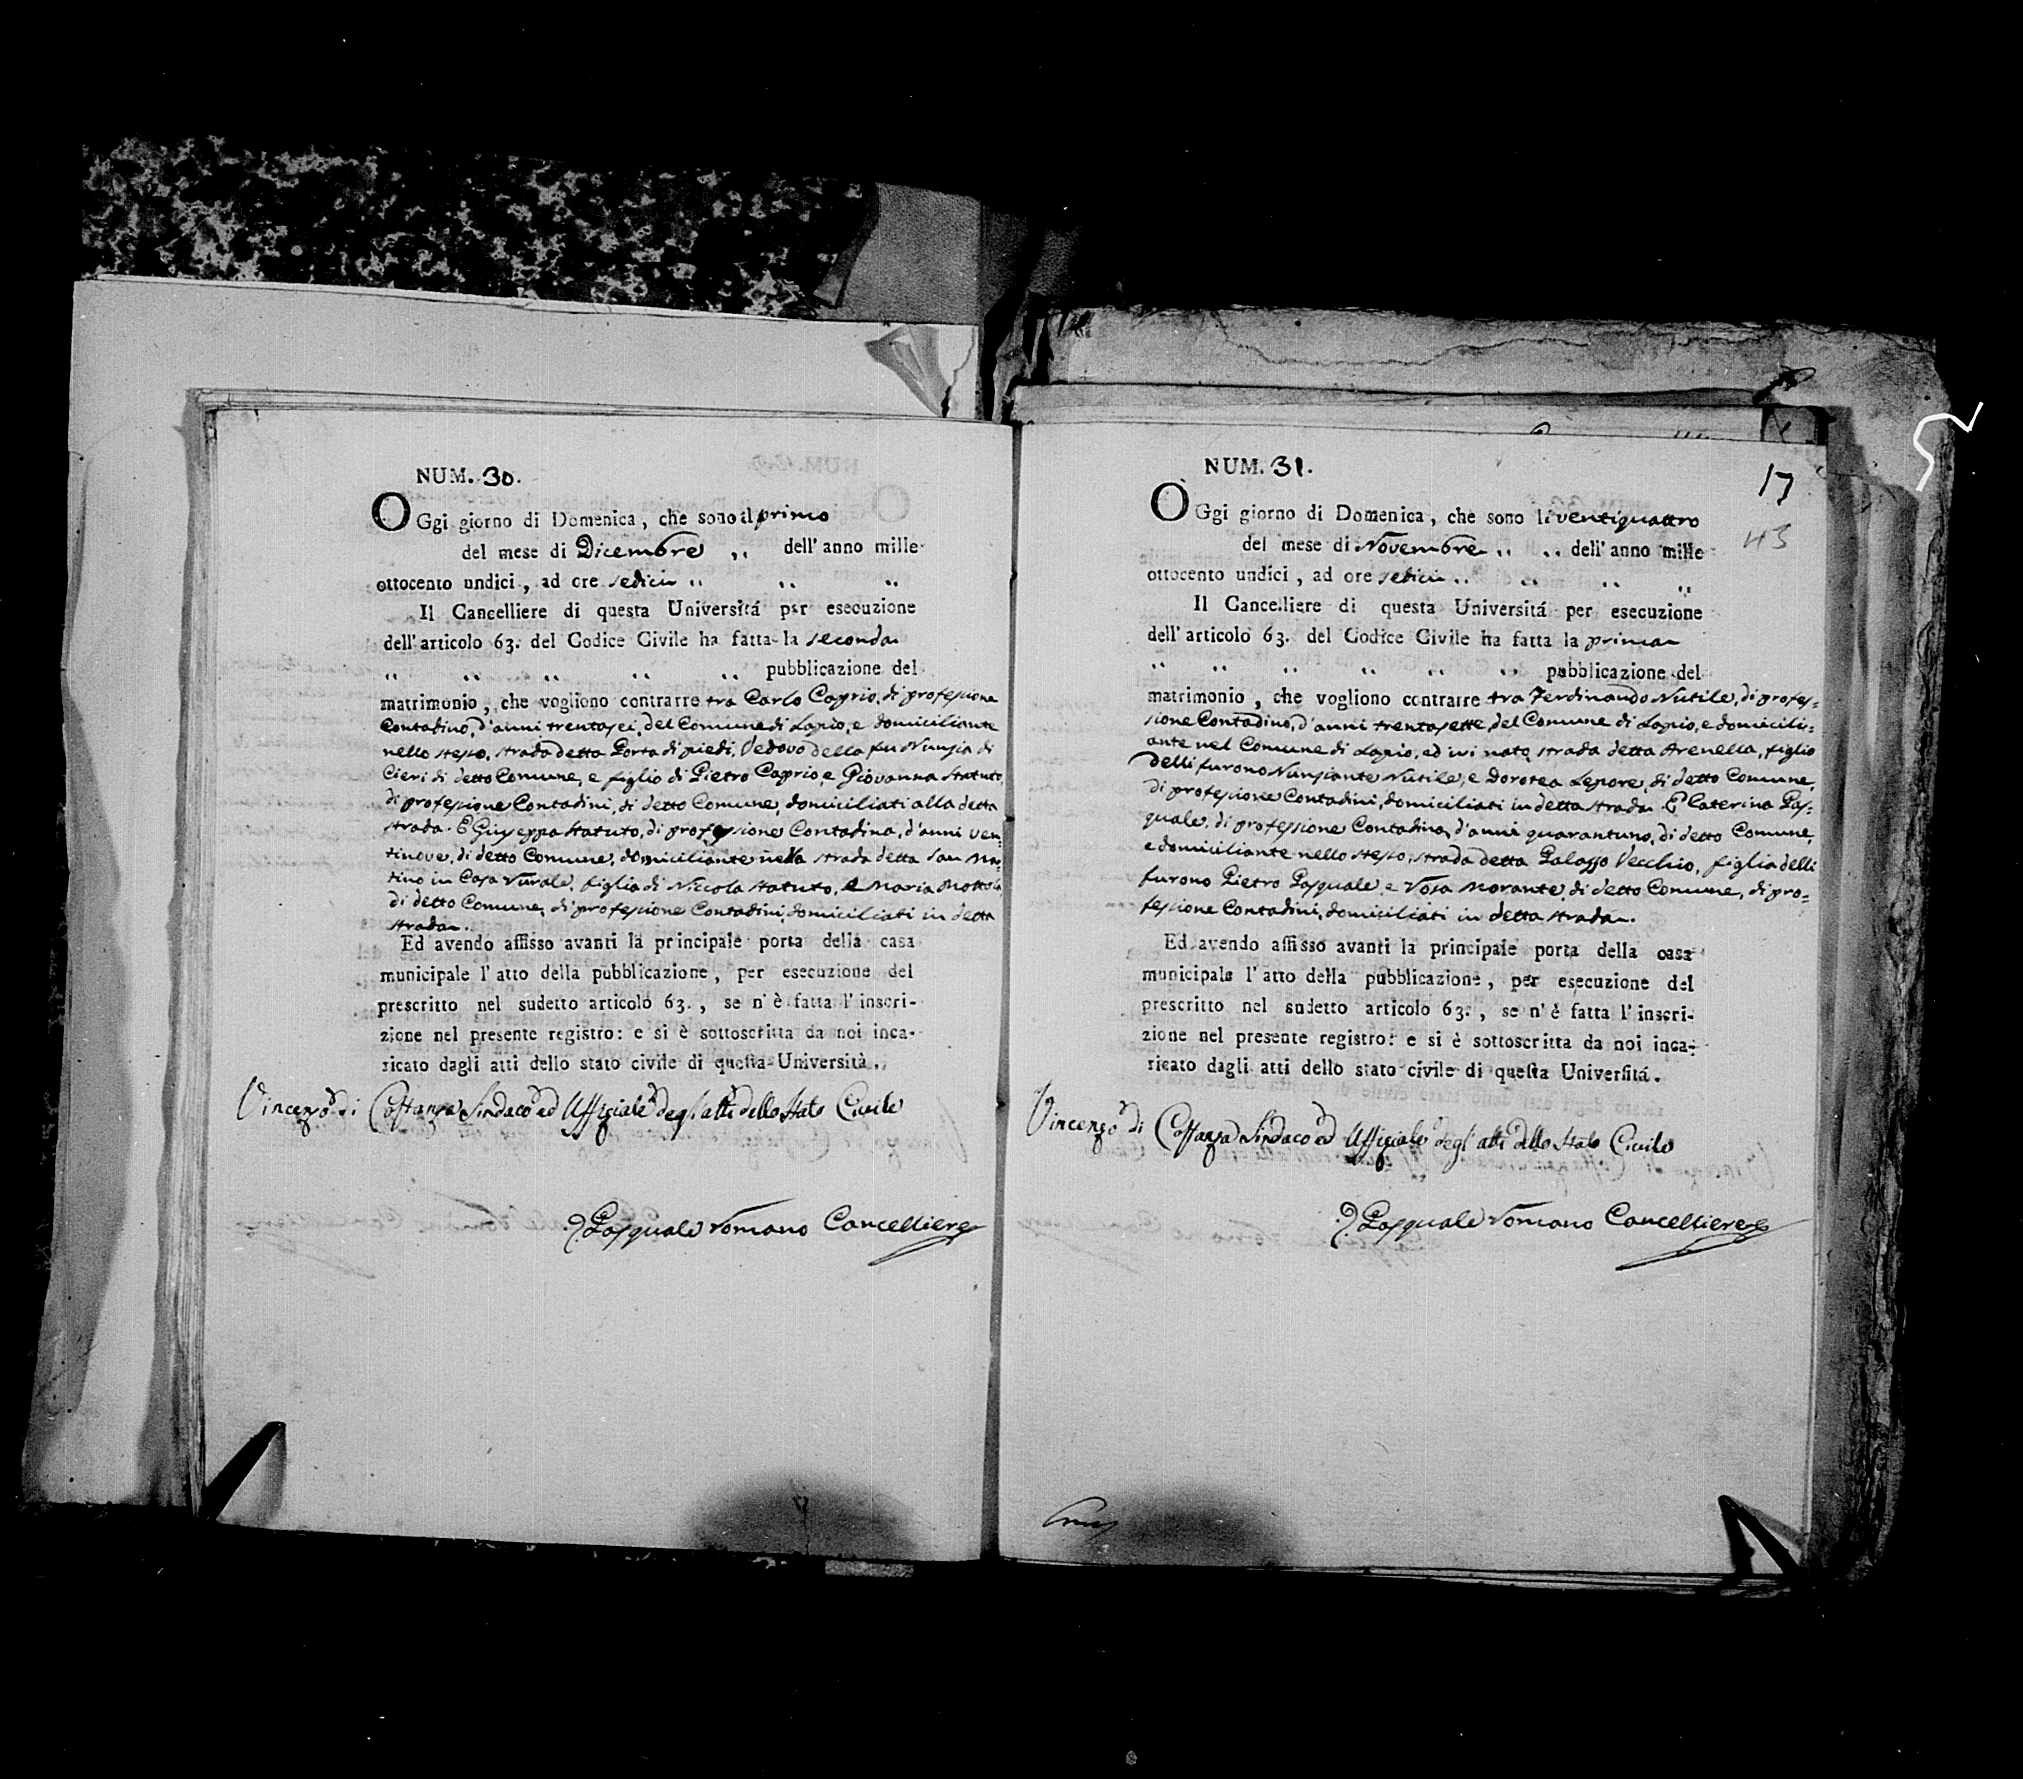 NUM. 30.
OGgi giorno di Domenica, che sono il primo
del mese di Dicembre ,, dell' anno mille
ottocento undici, ad ore sedici ,, ,, ,,
Il Cancelliere di questa Universitá per esecuzione
dell' articolo 63. del Codice Civile ha fatta la seconda
,, ,, ,, ,, ,, pubblicazione del
matrimonio, che vogliono contrarre tra Carlo Caprio, di professione
Contadino, d'anni trentasei, del Comune di Lapio, e domiciliante
nello stesso, strada detta Porta di piedi, Vedovo della fu Nunzia di
Cieri di detto Comune, e figlio di Pietro Caprio, e Giovanna Statuto,
di professione Contadini, di detto Comune, domiciliati alla detta
strada. E Giuseppa Statuto, di professione Contadina, d'anni ven-
tinove, di detto Comune, domiciliante nella strada detta San Mar-
tino in Casa rurale, figlia di Niccola Statuto, e Maria Mottola
di detto Comune, di professione Contadini, domiciliati in detta
strada.
Ed avendo affisso avanti la principale porta della casa
municipale l' atto della pubblicazione, per esecuzione del
prescritto nel sudetto articolo 63., se n' è fatta l' inscri-
zione nel presente registro: e si è sottoscritta da noi inca-
ricato dagli atti dello stato civile di questa Università.
Vincenzo di Costanza Sindaco ed Uffiziale degli atti dello Stato Civile
D. Pasquale Romano Cancelliere
NUM. 31.
17
43
OGgi giorno di Domenica, che sono li ventiquattro
del mese di Novembre ,, ,, dell' anno mille
ottocento undici, ad ore sedici ,, ,, ,, ,,
Il Cancelliere di questa Universitá per esecuzione
dell' articolo 63. del Codice Civile ha fatta la prima
,, ,, ,, ,, ,, ,, pubblicazione del
matrimonio, che vogliono contrarre tra Ferdinando Nutile, di profes-
sione Contadino, d'anni trentasette, del Comune di Lapio, e domicili-
ante nel Comune di Lapio, ed ivi nato, strada detta Arenella, figlio
delli furono Nunziante Nutile, e Dorotea Lepore, di detto Comune,
di professione Contadini, domiciliati in detta strada. E Caterina Pas-
quale, di professione Contadina, d'anni quarantuno, di detto Comune,
e domiciliante nello stesso, strada detta Palazzo Vecchio, figlia delli
furono Pietro Pasquale, e Rosa Morante, di detto Comune, di pro-
fessione Contadini, domiciliati in detta strada.
Ed avendo affisso avanti la principale porta della casa
municipale l' atto della pubblicazione, per esecuzione del
prescritto nel sudetto articolo 63., se n' è fatta l' inscri-
zione nel presente registro: e si è sottoscritta da noi inca-
ricato dagli atti dello stato civile di questa Universitá.
Vincenzo di Costanza Sindaco ed Uffiziale degli atti dello Stato Civile
D. Pasquale Romano Cancelliere